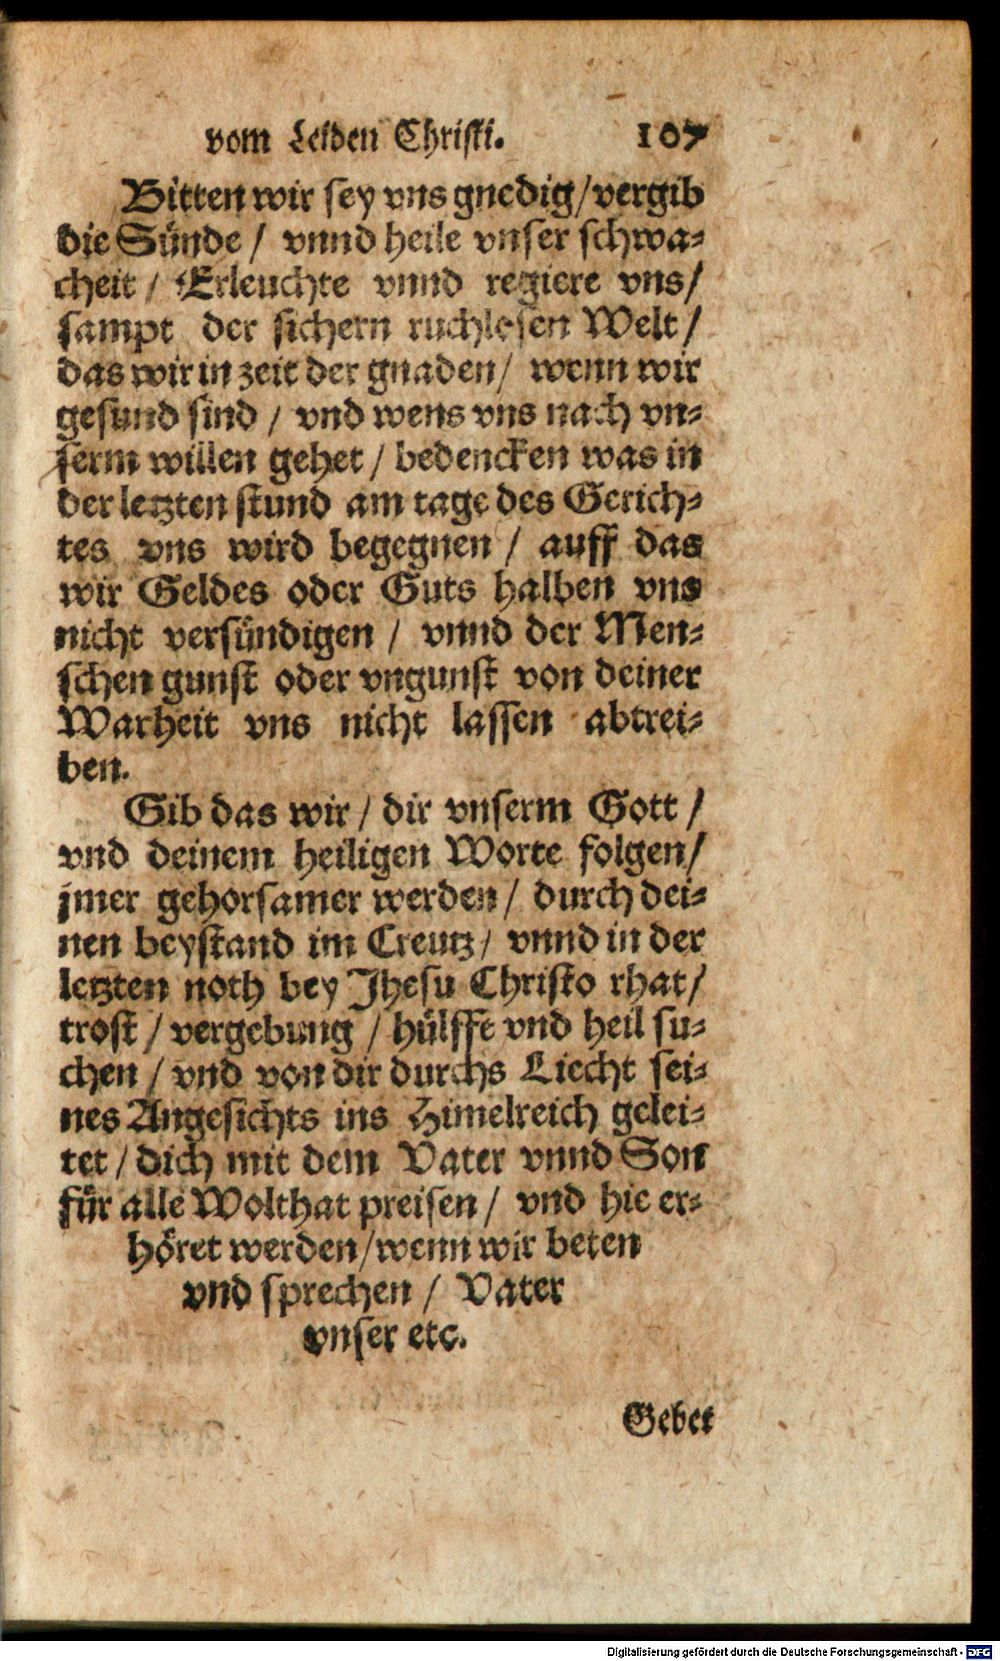 vom Leiden Christi. 107
Bitten wir sey vns gnedig/vergib
die Sünde / vnnd heile vnser schwa-
cheit / Erleuchte vnnd regiere vns/
sampt der sichern ruchlosen Welt /
das wir in zeit der gnaden / wenn wir
gesund sind / vnd wens vns nach vn-
serm willen gehet / bedencken was in
der letzten stund am tage des Gerich-
tes vns wird begegnen / auff das
wir Geldes oder Guts halben vns
nicht versündigen / vnnd der Men-
schen gunst oder vngunst von deiner
Warheit vns nicht lassen abtrei-
ben.
Gib das wir / dir vnserm Gott /
vnd deinem heiligen Worte folgen/
jmer gehorsamer werden / durch dei-
nen beystand im Creutz / vnnd in der
letzten noth bey Jhesu Christo rhat/
trost / vergebung / hülffe vnd heil su-
chen / vnd von dir durchs Liecht sei-
nes Angesichts ins Himelreich gelei-
tet / dich mit dem Vater vnnd Son
für alle Wolthat preisen / vnd hie er-
höret werden/wenn wir beten
vnd sprechen / Vater
vnser etc.
Gebet
Digitalisierung gefördert durch die Deutsche Forschungsgemeinschaft - DFG